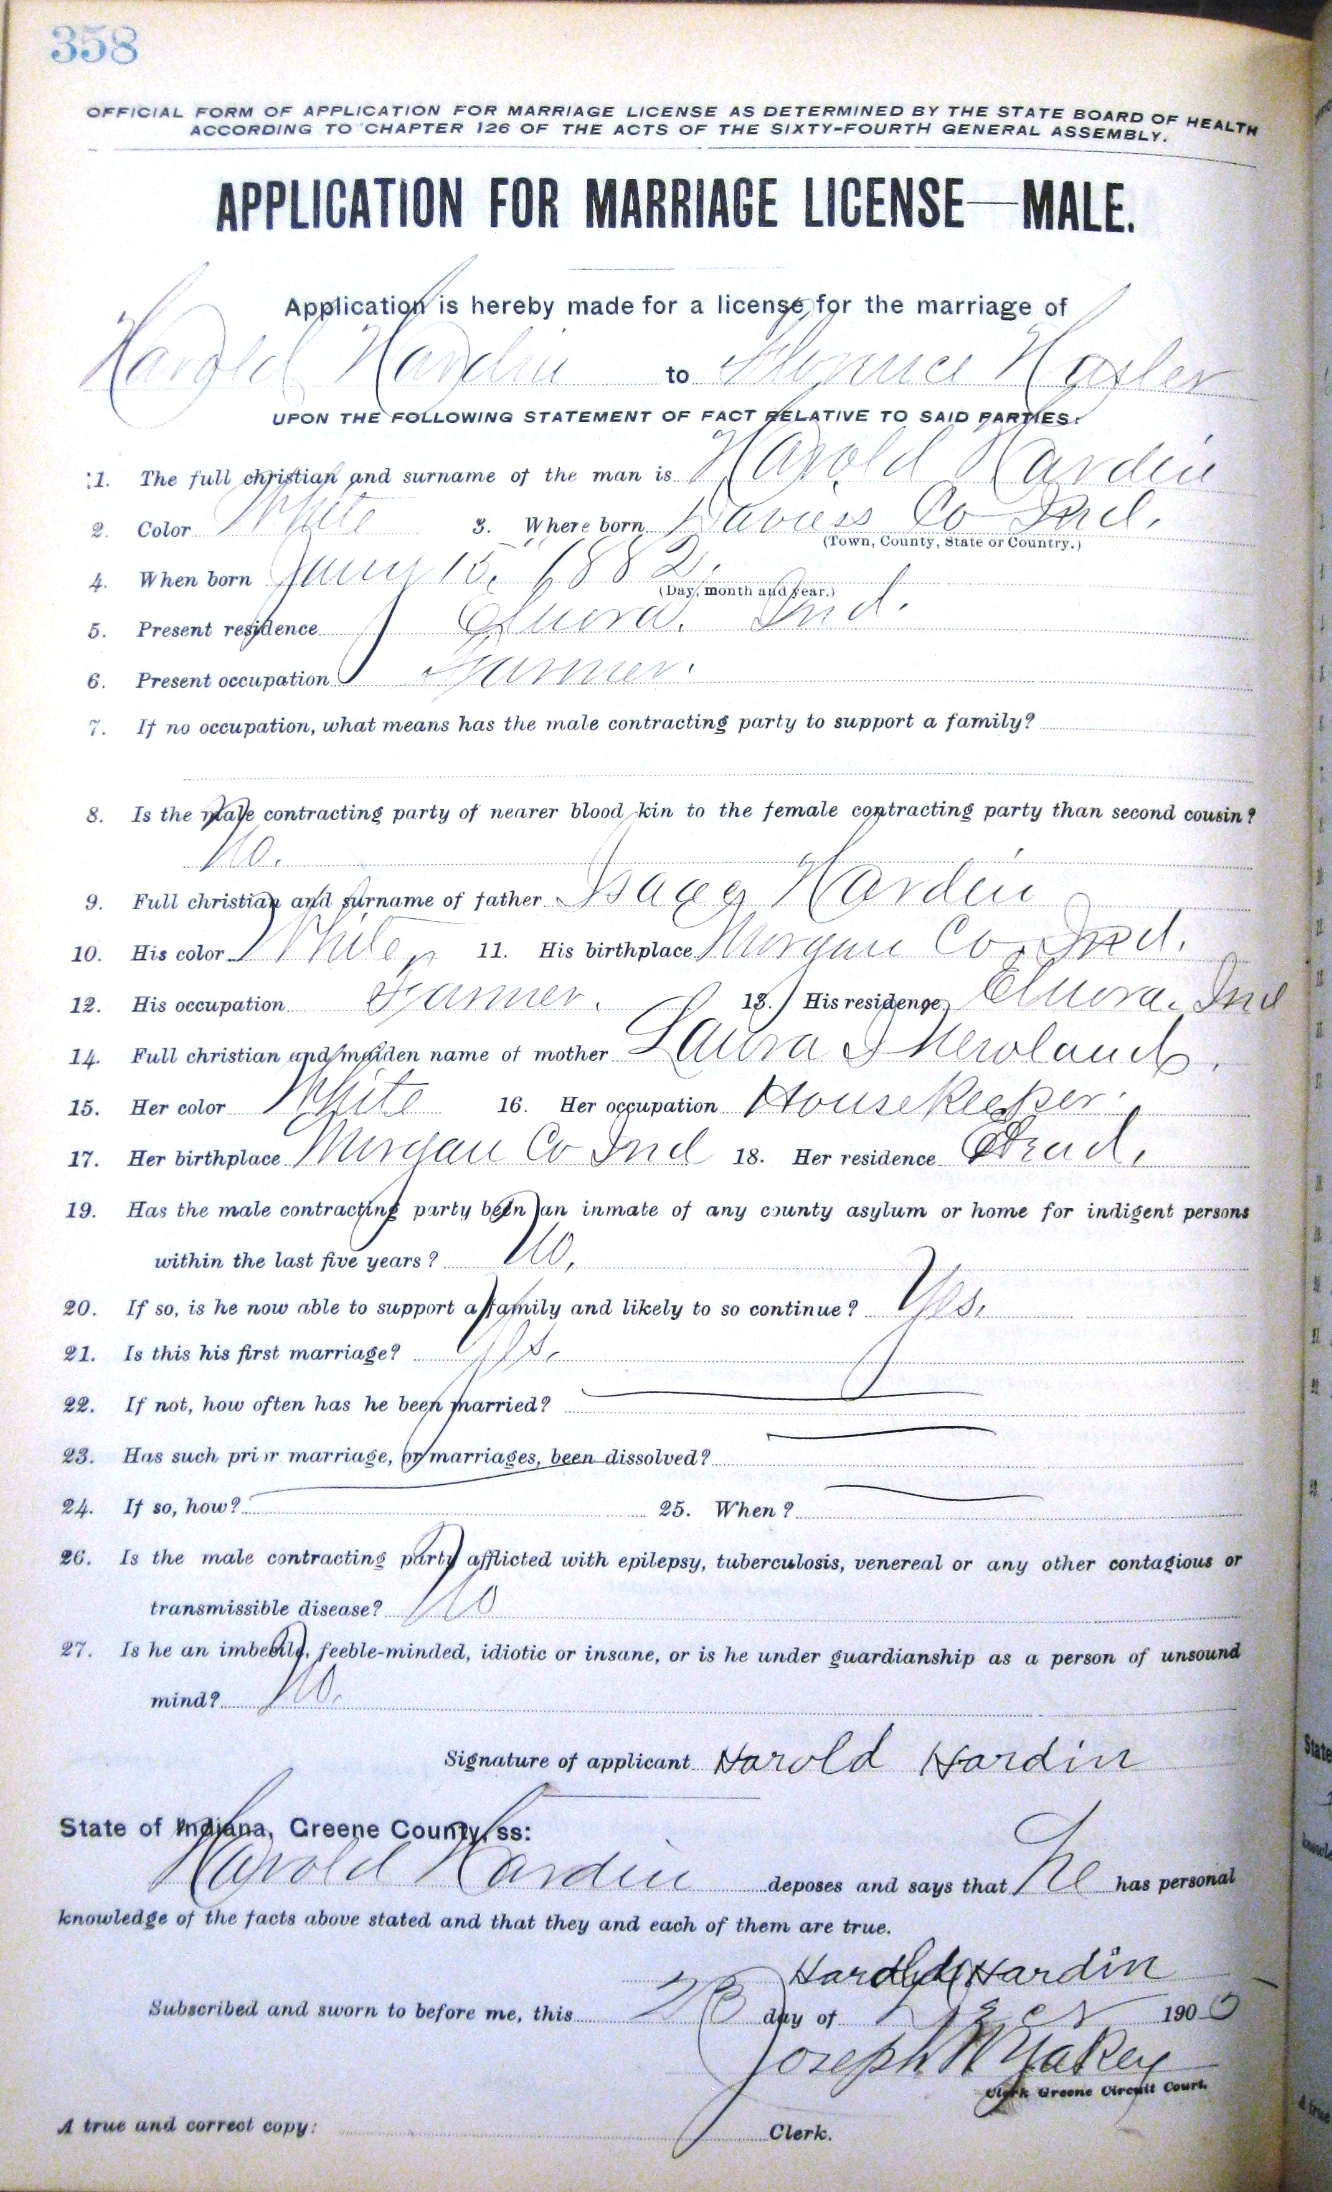 358
OFFICIAL FORM OF APPLICATION FOR MARRIAGE LICENSE AS DETERMINED BY THE STATE BOARD OF HEALTH
ACCORDING TO CHAPTER 126 OF THE ACTS OF THE SIXTY-FOURTH GENERAL ASSEMBLY.
APPLICATION FOR MARRIAGE LICENSE—MALE.
Application is hereby made for a license for the marriage of
Harold Hardin to Florence Hasler
UPON THE FOLLOWING STATEMENT OF FACT RELATIVE TO SAID PARTIES:
1. The full christian and surname of the man is Harold Hardin
2. Color White 3. Where born Daviess Co Ind.
(Town, County, State or Country.)
4. When born Jany 15, 1882.
(Day, month and year.)
5. Present residence Elnora. Ind.
6. Present occupation Farmer.
7. If no occupation, what means has the male contracting party to support a family?
8. Is the male contracting party of nearer blood kin to the female contracting party than second cousin?
No.
9. Full christian and surname of father Isaac Hardin
10. His color White 11. His birthplace Morgan Co. Ind.
12. His occupation Farmer. 13. His residence Elnora. Ind
14. Full christian and maiden name of mother Laura
15. Her color White 16. Her occupation Housekeeper.
17. Her birthplace Morgan Co Ind 18. Her residence
19. Has the male contracting party been an inmate of any county asylum or home for indigent persons
within the last five years? No.
20. If so, is he now able to support a family and likely to so continue? Yes.
21. Is this his first marriage? Yes.
22. If not, how often has he been married?
23. Has such prior marriage, or marriages, been dissolved?
24. If so, how? 25. When?
26. Is the male contracting party afflicted with epilepsy, tuberculosis, venereal or any other contagious or
transmissible disease? No
27. Is he an imbecile, feeble-minded, idiotic or insane, or is he under guardianship as a person of unsound
mind? No.
Signature of applicant Harold Hardin
State of Indiana, Greene County, ss:
Harold Hardin deposes and says that he has personal
knowledge of the facts above stated and that they and each of them are true.
Harold Hardin
Subscribed and sworn to before me, this 23 day of Decr 190
Joseph W Yakey
Clerk Greene Circuit Court.
A true and correct copy: Clerk.